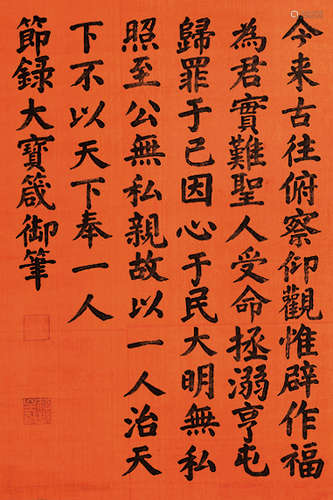 今来古往俯察仰觀惟辟作福
為君實難聖人受命拯溺亨屯
歸罪于己因心于民大明無私
照至公無私親故以一人治天
下不以天下奉一人
節録大寶箴御筆